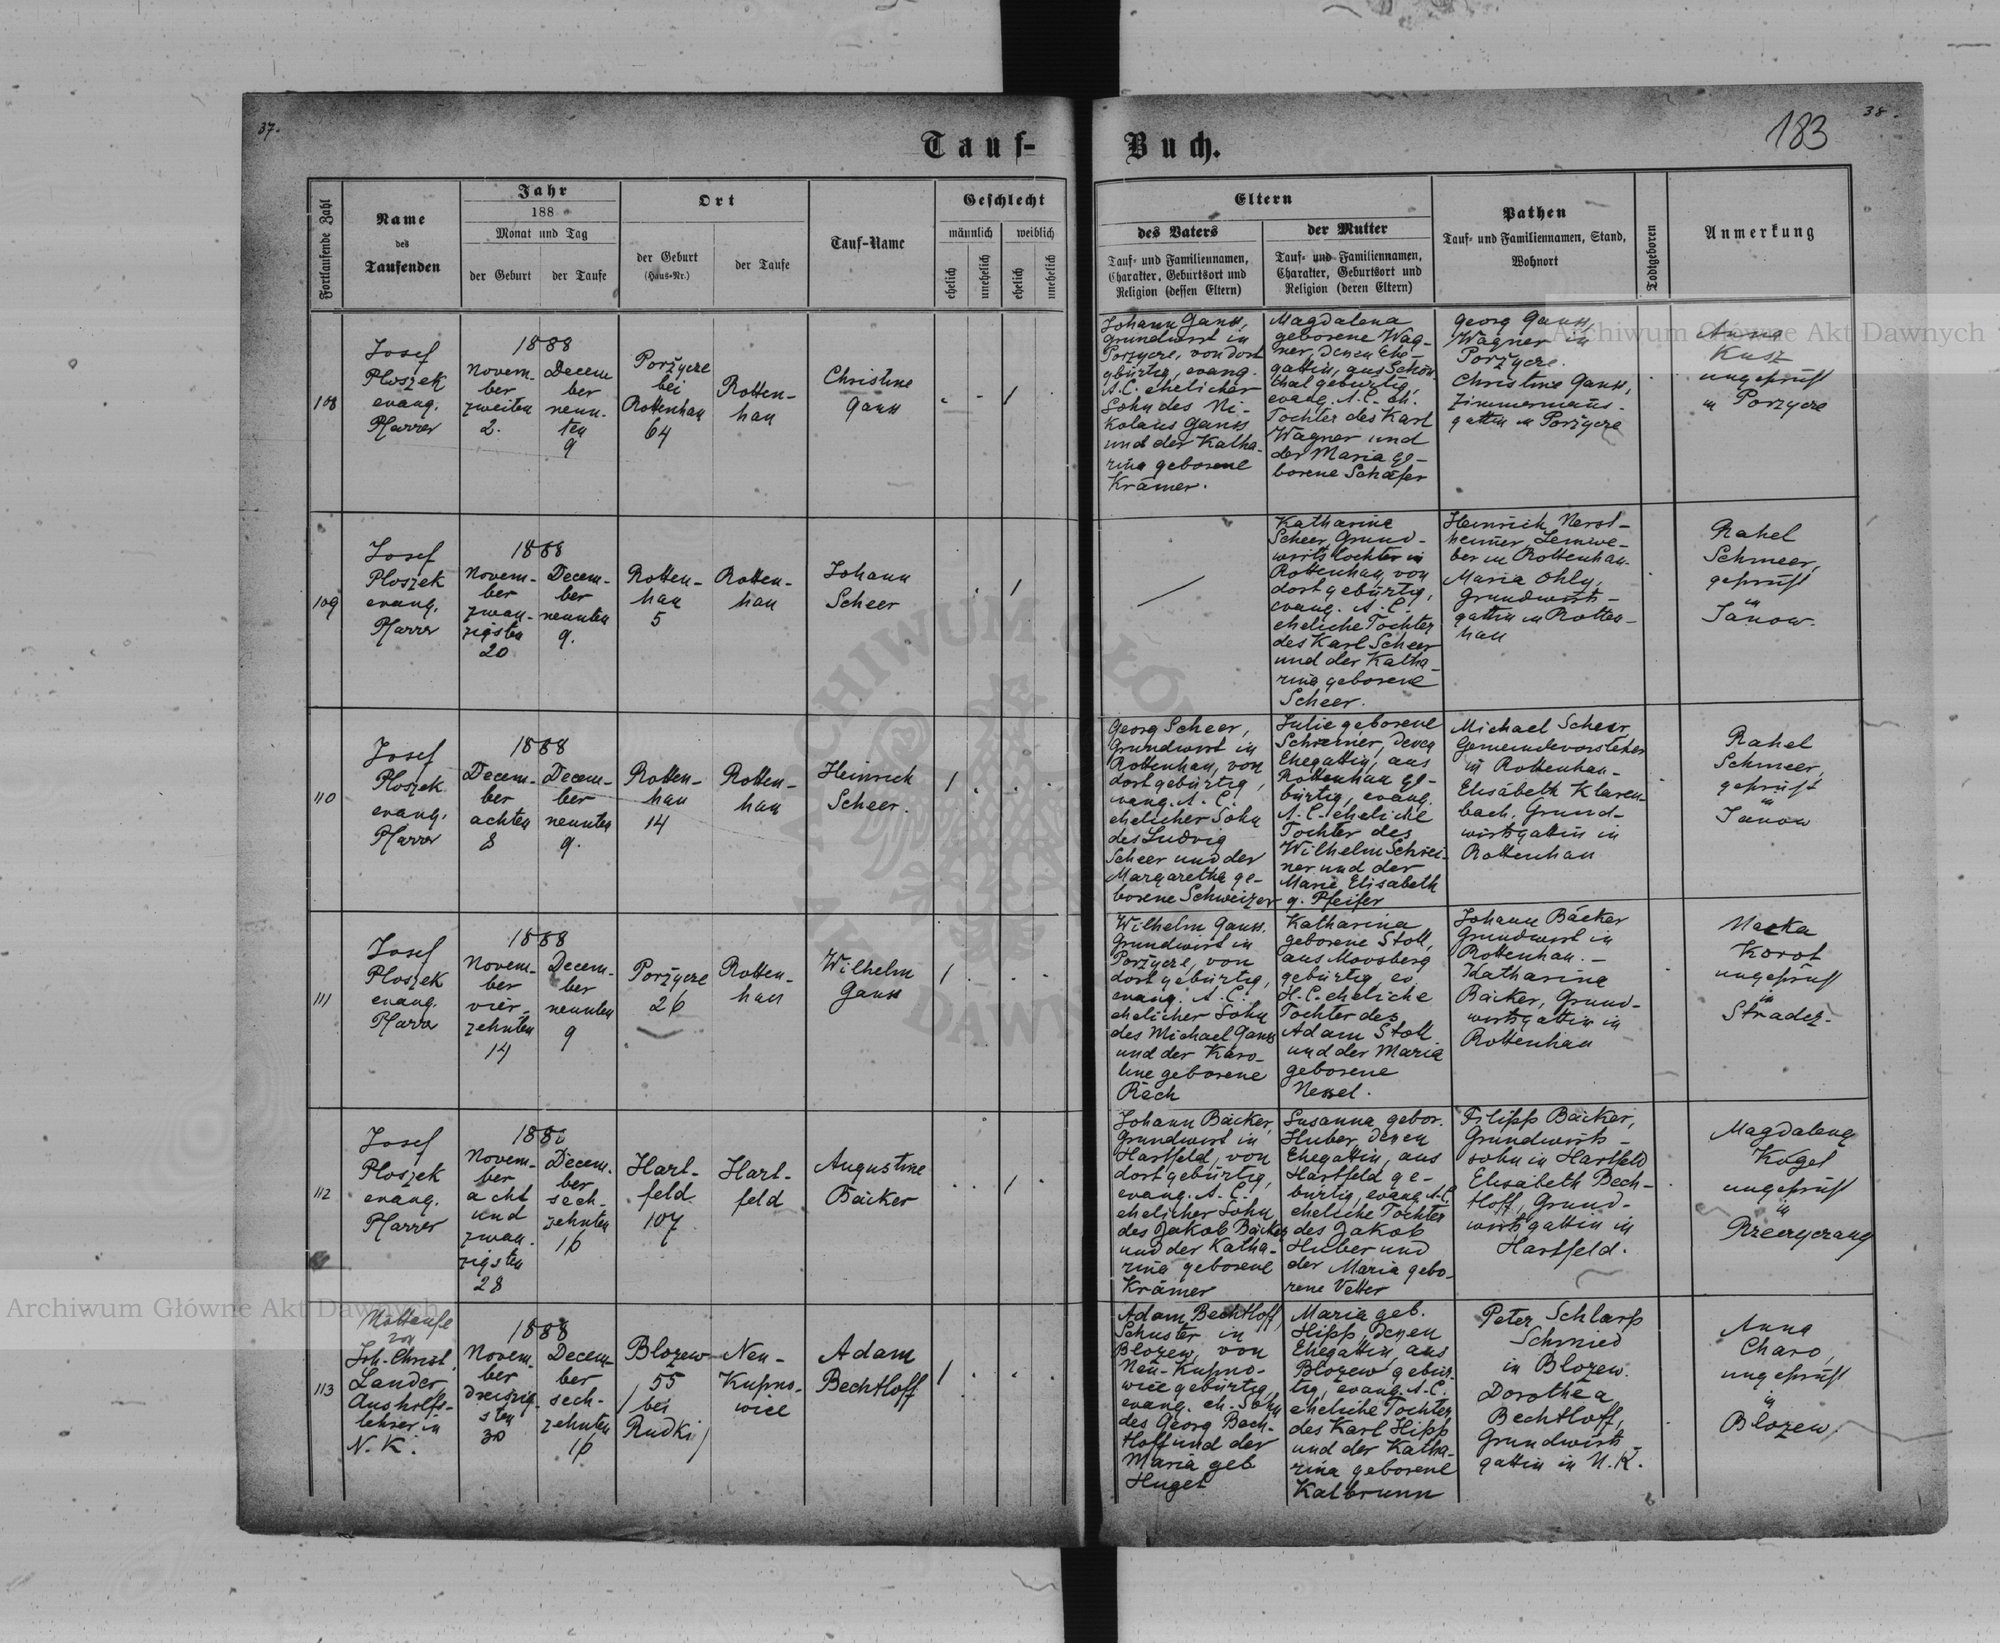 37.
38.
183
Tauf-Buch.
Fortlaufende Zahl
Name
des
Taufenden
Jahr
188
Monat und Tag
der Geburt
der Taufe
Ort
der Geburt
(Haus-Nr.)
der Taufe
Tauf-Name
Geschlecht
männlich
weiblich
ehelich
unehelich
ehelich
unehelich
Eltern
des Vaters
Tauf- und Familiennamen,
Charakter, Geburtsort und
Religion (dessen Eltern)
der Mutter
Tauf- und Familiennamen,
Charakter, Geburtsort und
Religion (deren Eltern)
Pathen
Tauf- und Familiennamen, Stand,
Wohnort
Todtgeboren
Anmerkung
108
Josef
Ploszek
evang.
Pfarrer
1888
Novem-
ber
zweiten
2.
Decem
ber
neun-
ten
9
Porzycze
bei
Rottenhan
64
Rotten-
han
Christine
Ganss
1
Johann Ganss,
Grundwirt in
Porzycze, von dort
gbürtig, evang.
A.C. ehelicher
Sohn des Ni-
kolaus Ganss
und der Katha-
rina geborene
Krämer.
Magdalena
geborene Wag-
ner, deren Ehe-
gattin, aus Schön
thal gebürtig,
evang. A.C. eh.
Tochter des Karl
Wagner und
der Maria ge-
borene Schäfer
Georg Ganss,
Wagner in
Porzycze.
Christine Ganss,
Zimmermanns-
gattin in Porzycze
Anna
Kusz
ungeprüft
in Porzycze
109
Josef
Ploszek
evang.
Pfarrer
1888
Novem-
ber
zwan-
zigsten
20
Decem-
ber
neunten
9.
Rotten-
han
5
Rotten-
han
Johann
Scheer
1
Katharine
Scheer, Grund-
wirtstochter in
Rottenhan, von
dort gebürtig,
evang. A.C.
eheliche Tochter
des Karl Scheer
und der Katha-
rina geborene
Scheer.
Heinrich
Leinwe-
ber in Rottenhan.
Maria Ohly,
Grundwirts-
gattin in Rotten-
han
Rahel
Schmeer,
geprüft
in
Janow.
110
Josef
Ploszek
evang.
Pfarrer
1888
Decem-
ber
achten
8
Decem-
ber
neunten
9.
Rotten-
han
14
Rotten-
han
Heinrich
Scheer.
1
Georg Scheer,
Grundwirt in
Rottenhan, von
dort gebürtig,
evang. A.C.
ehelicher Sohn
des Ludvig
Scheer und der
Margaretha ge-
borene Schweizer
Julie geborene
Schreiner, deren
Ehegattin, aus
Rottenhan ge-
bürtig, evang.
A.C. eheliche
Tochter des
Wilhelm Schrei-
ner und der
Marie Elisabeth
g. Pfeifer
Michael Scheer
Gemeindevorsteher
in Rottenhan-
Elisabeth Klaren-
bach, Grund-
wirtsgattin in
Rottenhan
Rahel
Schmeer,
geprüft
in
Janow
111
Josef
Ploszek
evang.
Pfarrer
1888
Novem-
ber
vier-
zehnten
14
Decem-
ber
neunten
9
Porzycze
26
Rotten-
han
Wilhelm
Ganss
1
Wilhelm Ganss.
Grundwirt in
Porzycze, von
dort gebürtig,
evang. A.C.
ehelicher Sohn
des Michael Ganss
und der Karo-
line geborene
Rech
Katharina
geborene Stoll,
aus Moosberg
gebürtig, ev.
H.C. eheliche
Tochter des
Adam Stoll
und der Maria
geborene
Nessel.
Johann Bäcker
Grundwirt in
Rottenhan.-
Katharine
Bäcker, Grund-
wirtsgattin in
Rottenhan
Korot
ungeprüft
in
Stradcz.
112
Josef
Ploszek
evang.
Pfarrer
1888
Novem-
ber
acht
und
zwan-
zigsten
28
Decem-
ber
sech-
zehnten
16
Hart-
feld
107
Hart-
feld
Augustine
Bäcker
1
Johann Bäcker,
Grundwirt in
Hartfeld, von
dort gebürtig,
evang. A.C.
ehelicher Sohn
des Jakob Bäcker
und der Katha-
rina geborene
Krämer
Susanna gebor.
Huber, deren
Ehegattin, aus
Hartfeld ge-
bürtig, evang. A.C.
eheliche Tochter
des Jakob
Huber und
der Maria gebo-
rene Vetter
Filipp Bäcker,
Grundwirts-
sohn in Hartfeld
Elisabeth Bech-
tloff, Grund-
wirtsgattin in
Hartfeld.
Magdalena
Kogel
ungeprüft
in
113
Nottaufe
von
Joh. Christ.
Lander
Aushilfs-
lehrer in
N.K.
1888
Novem-
ber
dreissig-
sten
30
Decem-
ber
sech-
zehnten
16
Blozew
55
(bei
Rudki)
Neu-
Kupno-
wice
Adam
Bechtloff
1
Adam Bechtloff,
Schuster in
Blozew, von
Neu-Kupno-
wice gebürtig,
evang. eh. Sohn
des Georg Bech-
tloff und der
Maria geb
Hugel
Maria geb.
Hipp, deren
Ehegattin, aus
Blozew gebür-
tig, evang. A.C.
eheliche Tochter
des Karl Hipp
und der Katha-
rina geborene
Kalbrunn
Peter Schlarp
Schmied
in Blozew.
Dorothea
Bechtloff,
Grundwirts-
gattin in N.K.
Anna
Charo,
ungeprüft
in
Blozew.
Archiwum Główne Akt Dawnych
Archiwum Główne Akt Dawnych
ARCHIWUM GŁÓWNE AKT DAWNYCH